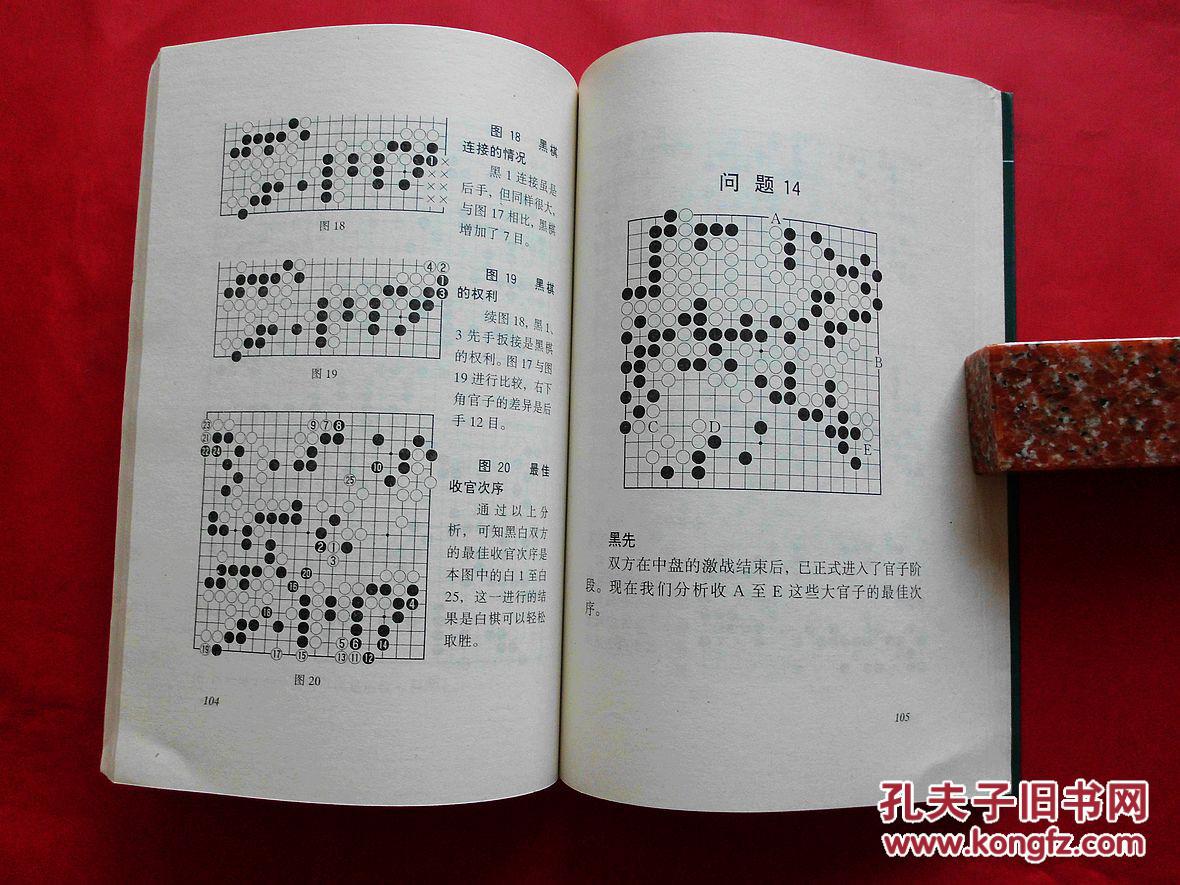 图 18 黑棋
连接的情况
黑 1 连接虽是
后手，但同样很大，
与图 17 相比，黑棋
增加了 7 目。
图18
图 19 黑棋
的权利
续图 18，黑 1、
3 先手扳接是黑棋
的权利。图 17 与图
19 进行比较，右下
角官子的差异是后
手 12 目。
图19
图 20 最佳
收官次序
通过以上分
析，可知黑白双方
的最佳收官次序是
本图中的白 1 至白
25，这一进行的结
果是白棋可以轻松
取胜。
图20
104
问题14
A
B
C
D
E
黑先
双方在中盘的激战结束后，已正式进入了官子阶
段。现在我们分析收 A 至 E 这些大官子的最佳次
序。
105
孔夫子旧书网
www.kongfz.com